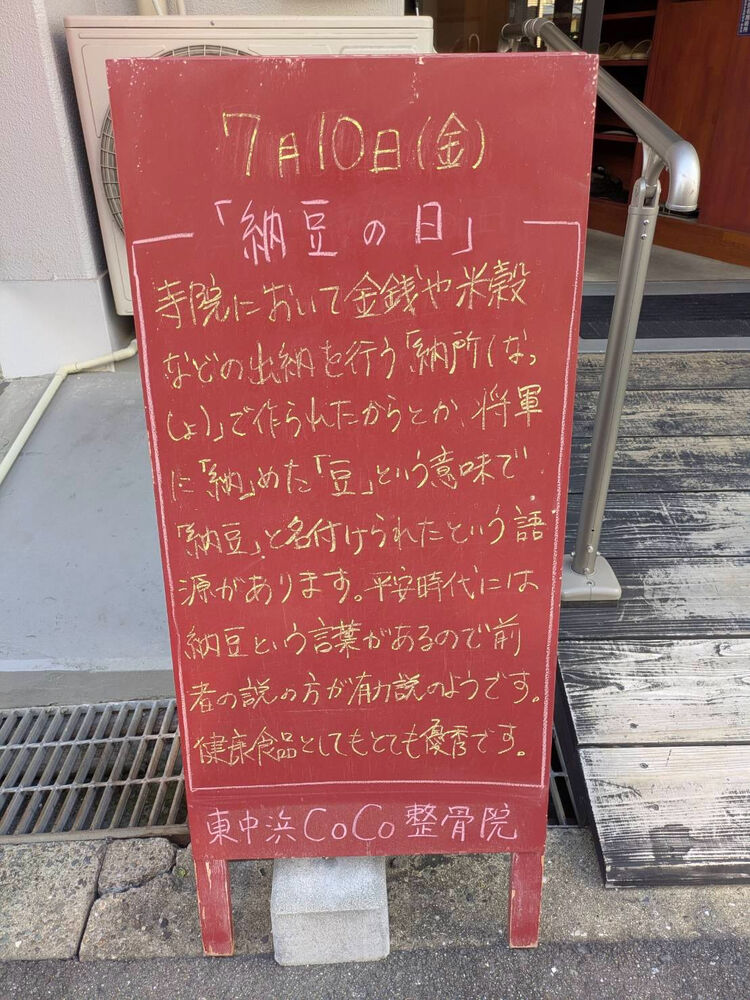 7月10日(金)
「納豆の日」
寺院において金銭や米穀
などの出納を行う「納所(なっ
しょ)」で作られたからとか、将軍
に「納」めた「豆」という意味で
「納豆」と名付けられたという語
源があります。平安時代には
納豆という言葉があるので前
者の説の方が有力説のようです。
健康食品としてもとても優秀です。
東中浜CoCo整骨院